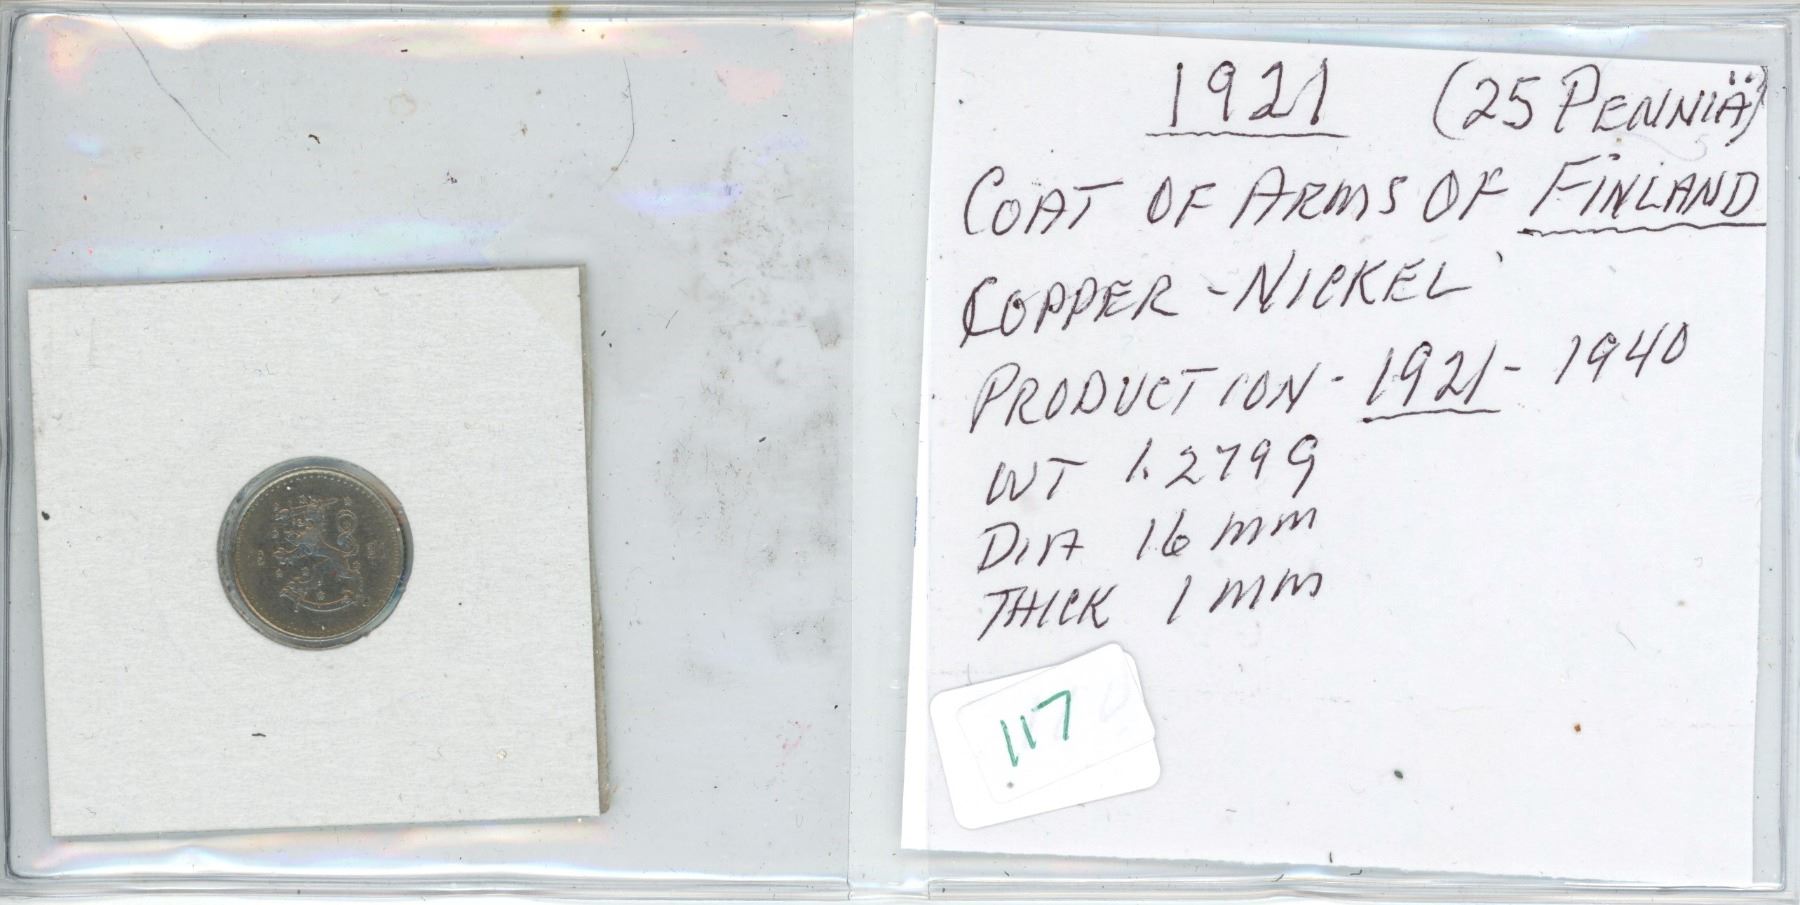 1921 (25 PENNIÄ)
COAT OF ARMS OF FINLAND
COPPER-NICKEL
PRODUCTION - 1921 - 1940
WT 1.279 G
DIA 16 mm
THICK 1 mm
117